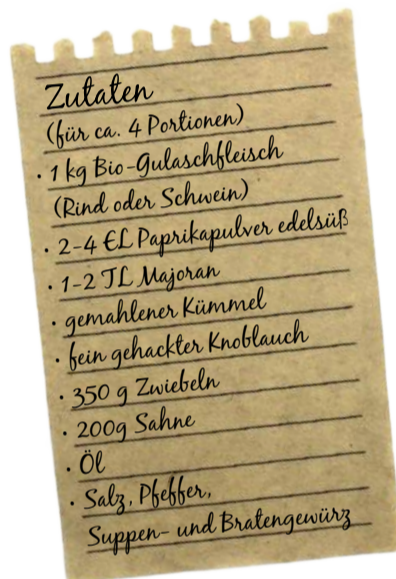 Zutaten
(für ca. 4 Portionen)
• 1 kg Bio-Gulaschfleisch
(Rind oder Schwein)
• 2-4 EL Paprikapulver edelsüß
• 1-2 TL Majoran
• gemahlener Kümmel
• fein gehackter Knoblauch
• 350 g Zwiebeln
• 200g Sahne
• Öl
• Salz, Pfeffer,
Suppen- und Bratengewürz